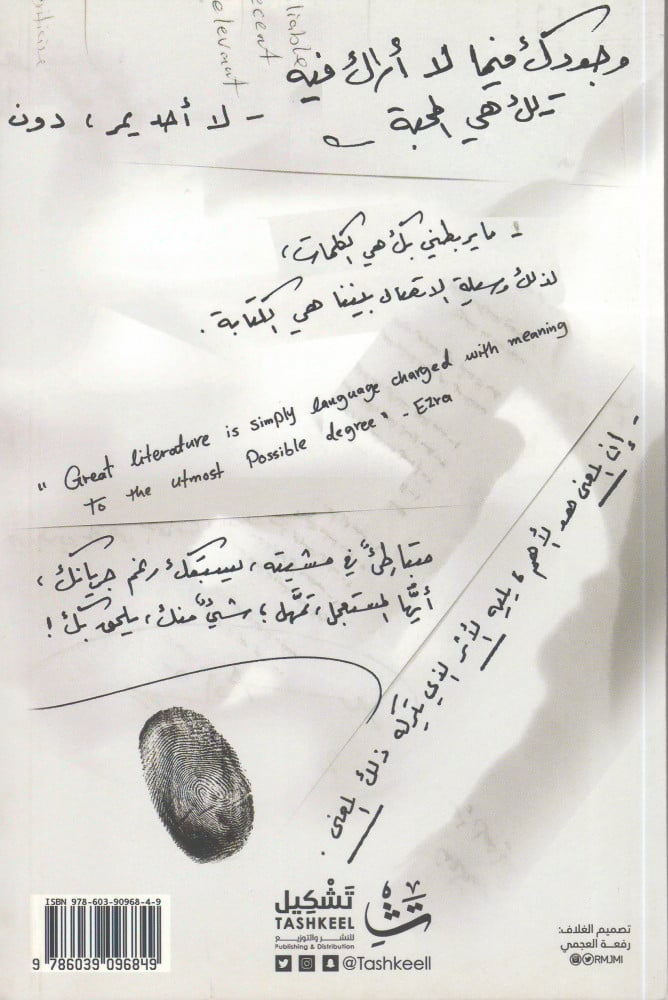 liable
ecent
elevant
وجودك فيما لا أراك فيه
تلك هي المحبة
- لا أحد يمر، دون
- ما يربطني بك هي الكلمات،
لذلك وسيلة الاتصال بيننا هي الكتابة.
" Great literature is simply language charged with meaning
to the utmost Possible degree" - Ezra
- إن المعنى هو الأهم، يليه الأثر الذي يتركه ذلك المعنى.
متباطئٌ في مشيته، يسبقك رغم جريانك،
أيّها المستعجل، تمهّل؛ شيءٌ منك، يلحق بك!
ISBN 978-603-90968-4-9
9 786039 096849
تَشْكِيل
TASHKEEL
للنشر والتوزيع
Publishing & Distribution
@Tashkeell
تصميم الغلاف:
رفعة العجمي
RMJMI